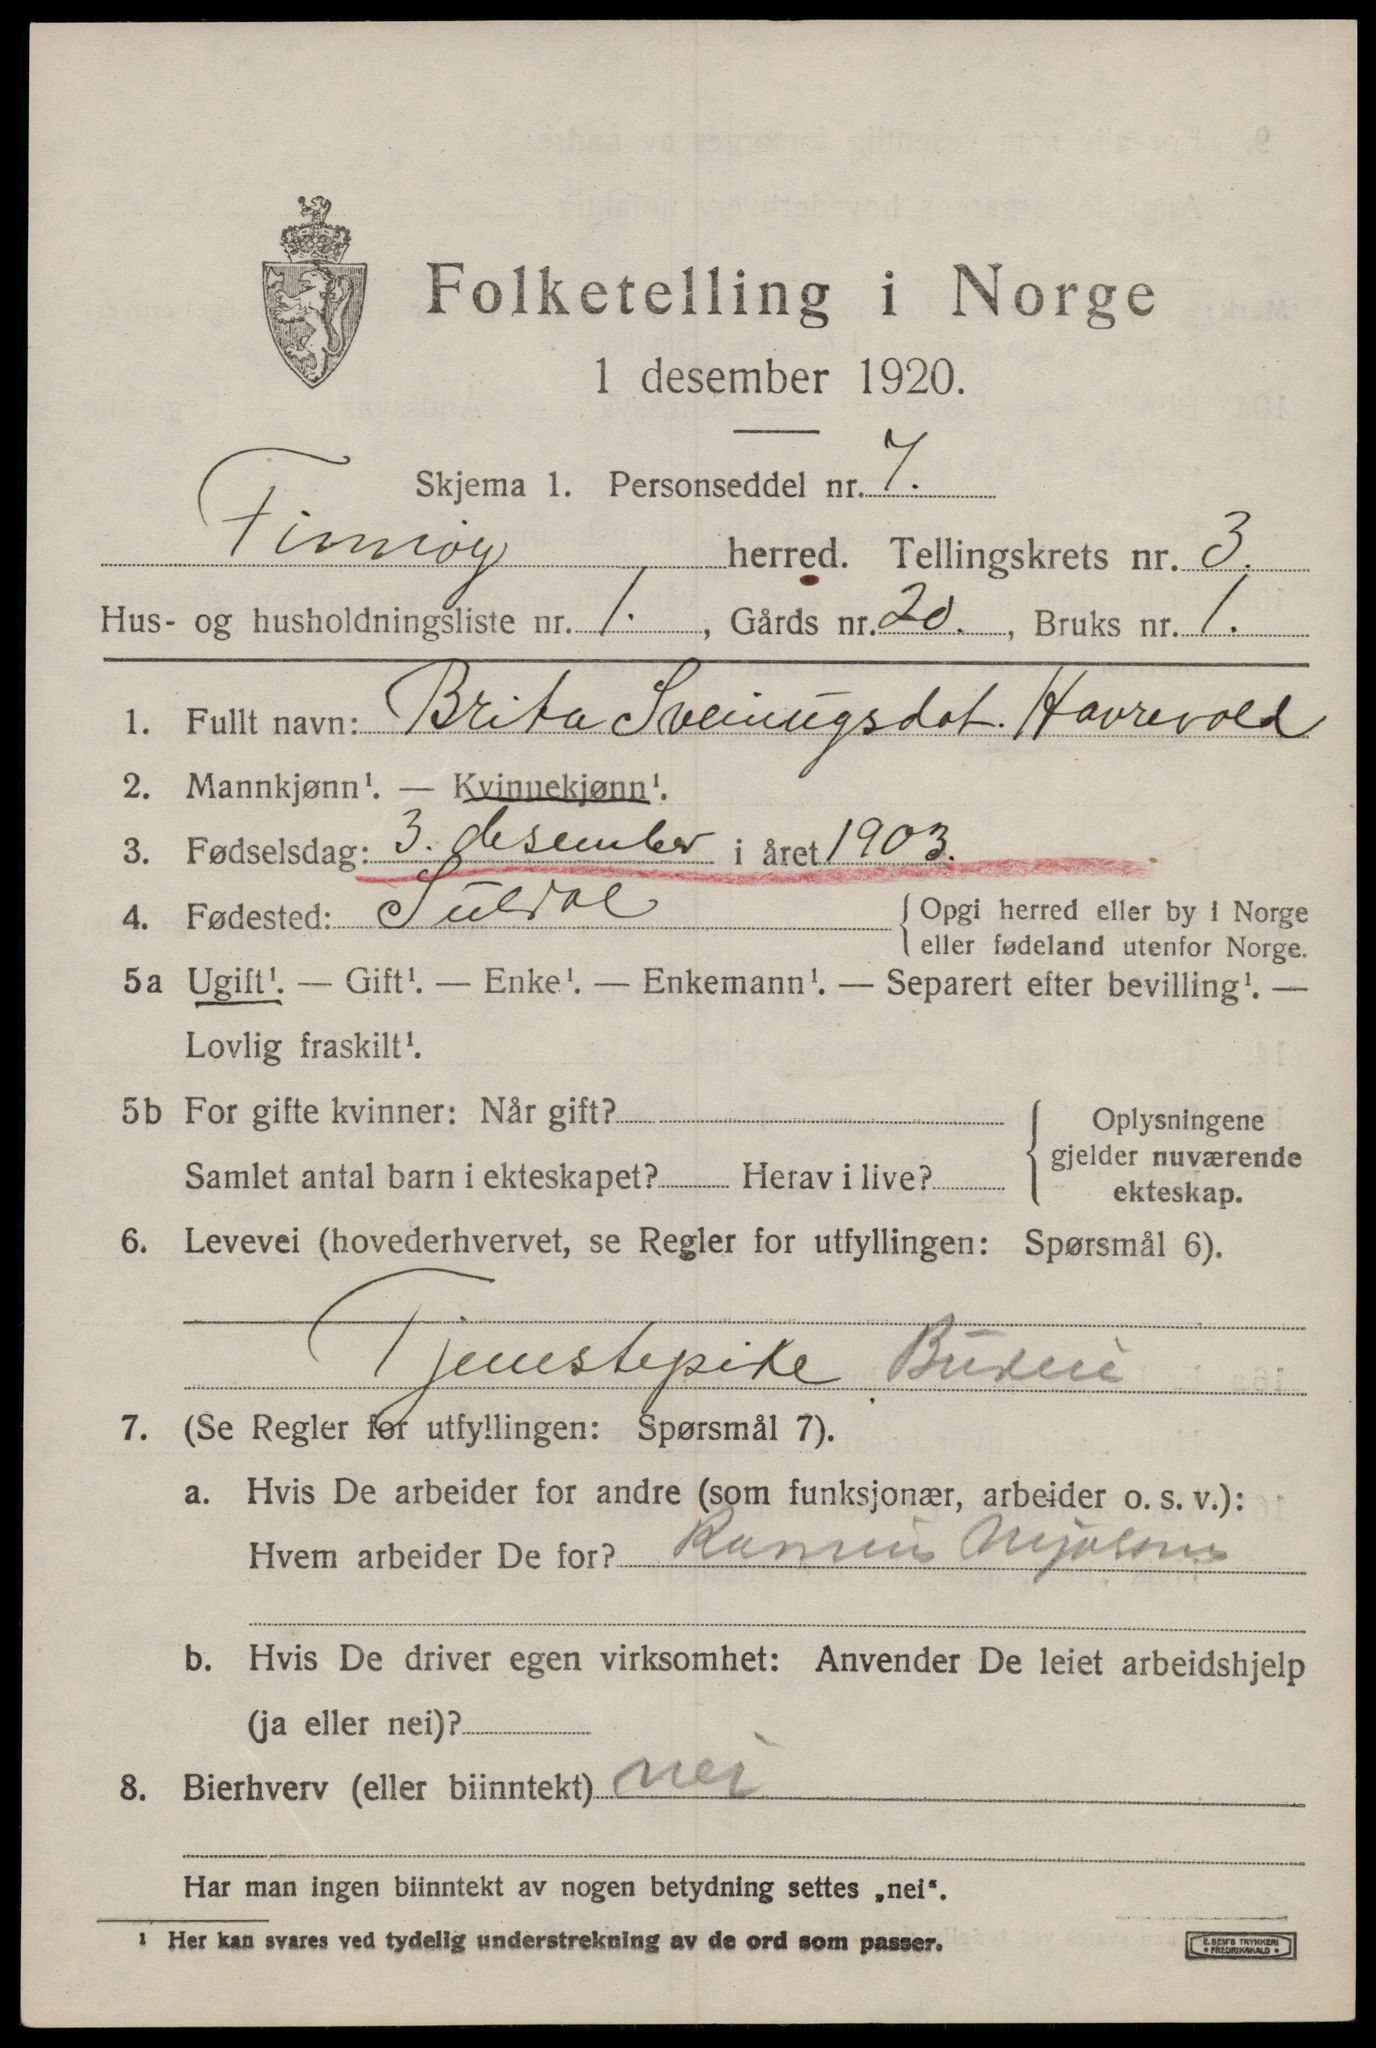 Folketelling i Norge
1 desember 1920.
Skjema 1. Personseddel nr. 7.
Finnöy herred. Tellingskrets nr. 3.
Hus- og husholdningsliste nr. 1., Gårds nr. 20., Bruks nr. 1.
1. Fullt navn: Brita Sveinungsdot. Havrevold
2. Mannkjønn¹. — Kvinnekjønn¹.
3. Fødselsdag: 3. desember i året 1903.
4. Fødested: Suldal
{ Opgi herred eller by i Norge
eller fødeland utenfor Norge.
5a Ugift¹. — Gift¹. — Enke¹. — Enkemann¹. — Separert efter bevilling¹. —
Lovlig fraskilt¹.
5b For gifte kvinner: Når gift?
Samlet antal barn i ekteskapet? Herav i live?
{ Oplysningene
gjelder nuværende
ekteskap.
6. Levevei (hovederhvervet, se Regler for utfyllingen: Spørsmål 6).
Tjenestepike Budeie
7. (Se Regler for utfyllingen: Spørsmål 7).
a. Hvis De arbeider for andre (som funksjonær, arbeider o. s. v.):
Hvem arbeider De for?
b. Hvis De driver egen virksomhet: Anvender De leiet arbeidshjelp
(ja eller nei)?
8. Bierhverv (eller biinntekt) nei
Har man ingen biinntekt av nogen betydning settes „nei“.
¹ Her kan svares ved tydelig understrekning av de ord som passer.
E. SEM'S TRYKKERI
• FREDRIKSHALD •